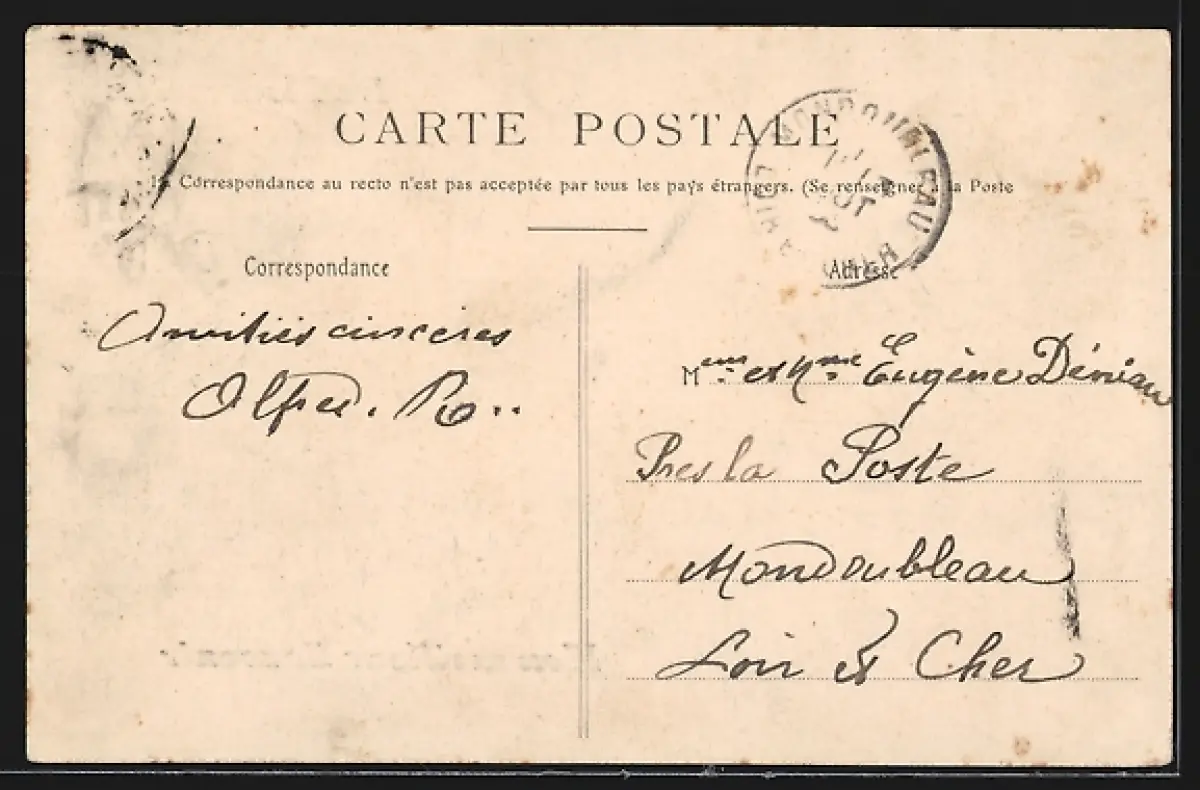 CARTE POSTALE
La Correspondance au recto n'est pas acceptée par tous les pays étrangers. (Se renseigner à la Poste
Correspondance
Amitiés sincères
Alfred. R..
Adresse
MONDOUBLEAU
Eugène
Pres la Poste
Mondoubleau
Loir et Cher